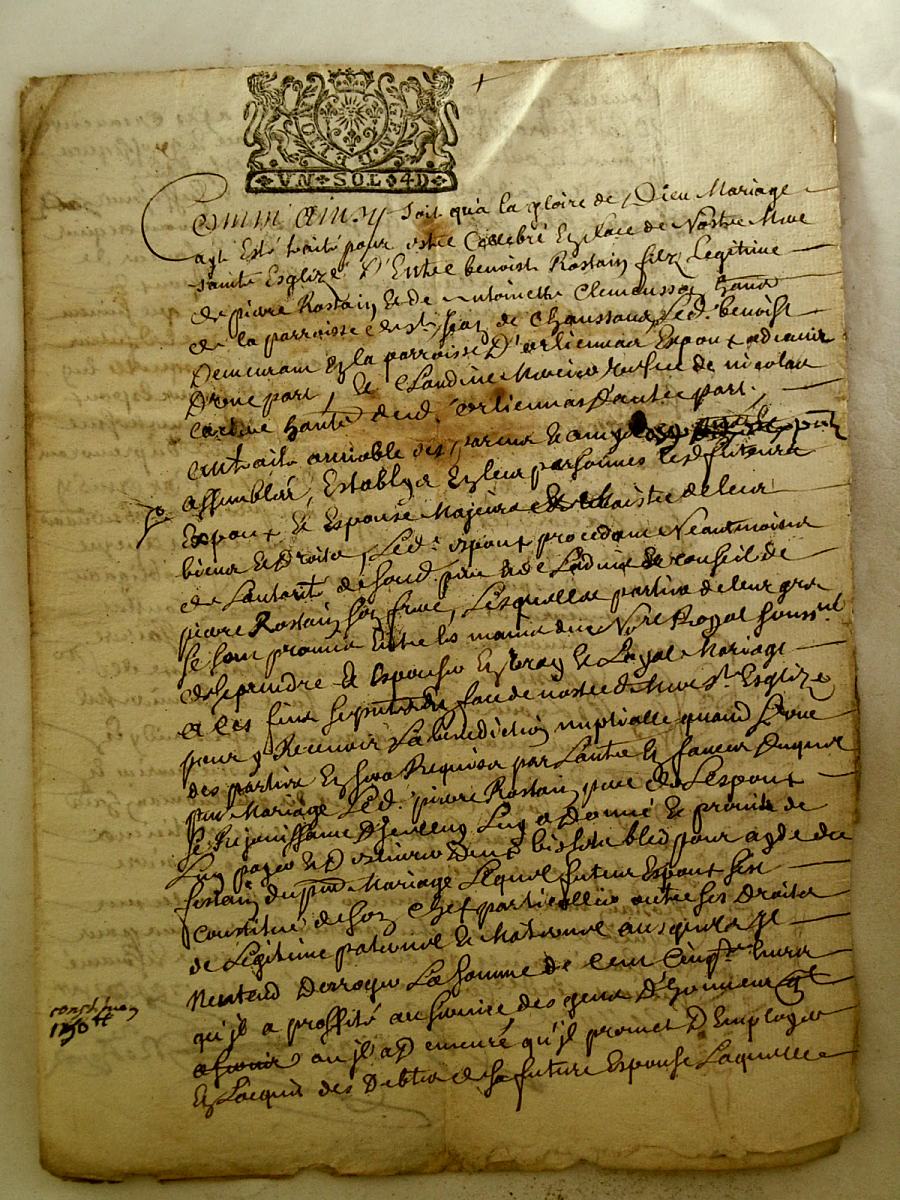 GEN. DE LION
UN SOL 4D
Comm' ainsy soit qu'a la gloire de Dieu Mariage
ayt Esté traité pour estre Celebré En face de Nostre Mere
sainte Esglize, D'Entre benoist Rostain filz Legitime
de pierre Rostain Et de Antoinette Clemausson
de la parroisse de St Jean de Chaussan, Led. benoist
Demeurant En la parroisse D'orliennas Espoux advenir
D'une part, Et Claudine vefve de nicolas
dud. orliennas d'autre part,
amiable des parens Et amys
assemblés, Establys En leur personnes lesd. futeurs
Espoux Et Espouse Majeurs Et Maistre de leur
biens Et Droits, Led. espoux procedant Neantmoins
de L'autorité de sond. pere Et de L'advis Et conseil de
pierre Rostain son frere, Lesquelles parties de leur gré
se sont promis Entre les mains du Nore Royal soussné
de se prendre Et Espouser En vray Et Loyal Mariage
a ces fins se face de nostre d. Mere Ste Esglize
pour y Recevoir La benediction nuptialle quand L'une
des parties En sera Requise par L'autre En faveur duquel
pnt Mariage Led. pierre Rostain pere de L'espoux
se Rejouissant D'jcelluy Luy a Donné Et promis de
Luy payer Et Deslivrer bled pour ayde du
festain du pnt Mariage Lequel futeur Espoux s'est
Constitué de son Chef particullier outre ses Droits
de Legitime paternel Et Maternel ausquels jl
N'entend Derroger La somme de Cent Cinqte livres
qu'jl a proffité au service des gens D'honneur
ou jl a Demeuré qu'jl promet D'Employer
En L'acquit des Debtes de sa future Espouse Laquelle
constituon
150 tt